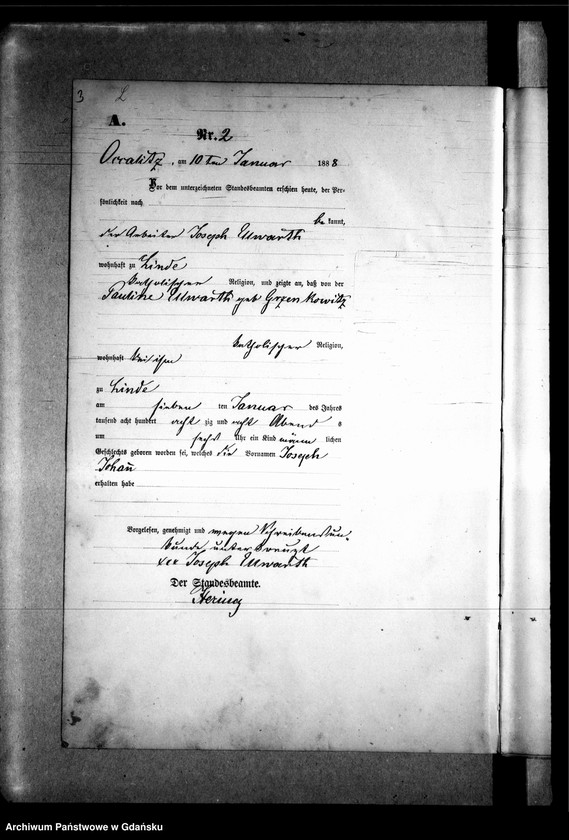 3
A.
Nr. 2
Occalitz, am 10ten Januar 1888
Vor dem unterzeichneten Standesbeamten erschien heute, der Per-
sönlichkeit nach
be kannt,
der Arbeiter Joseph Ellwarth
wohnhaft zu Linde
katholischer Religion, und zeigte an, daß von der
Pauline Ellwarth geb Grzenkowitz
katholischer Religion,
wohnhaft bei ihm
zu Linde
am sieben ten Januar des Jahres
tausend acht hundert acht zig und acht Abend s
um sechs Uhr ein Kind männ lichen
Geschlechts geboren worden sei, welches die Vornamen Joseph
Johann
erhalten habe
Vorgelesen, genehmigt und wegen Schreibensun-
kunde unterkreuzt
xxx Joseph Ellwarth
Der Standesbeamte.
Hering
Archiwum Państwowe w Gdańsku